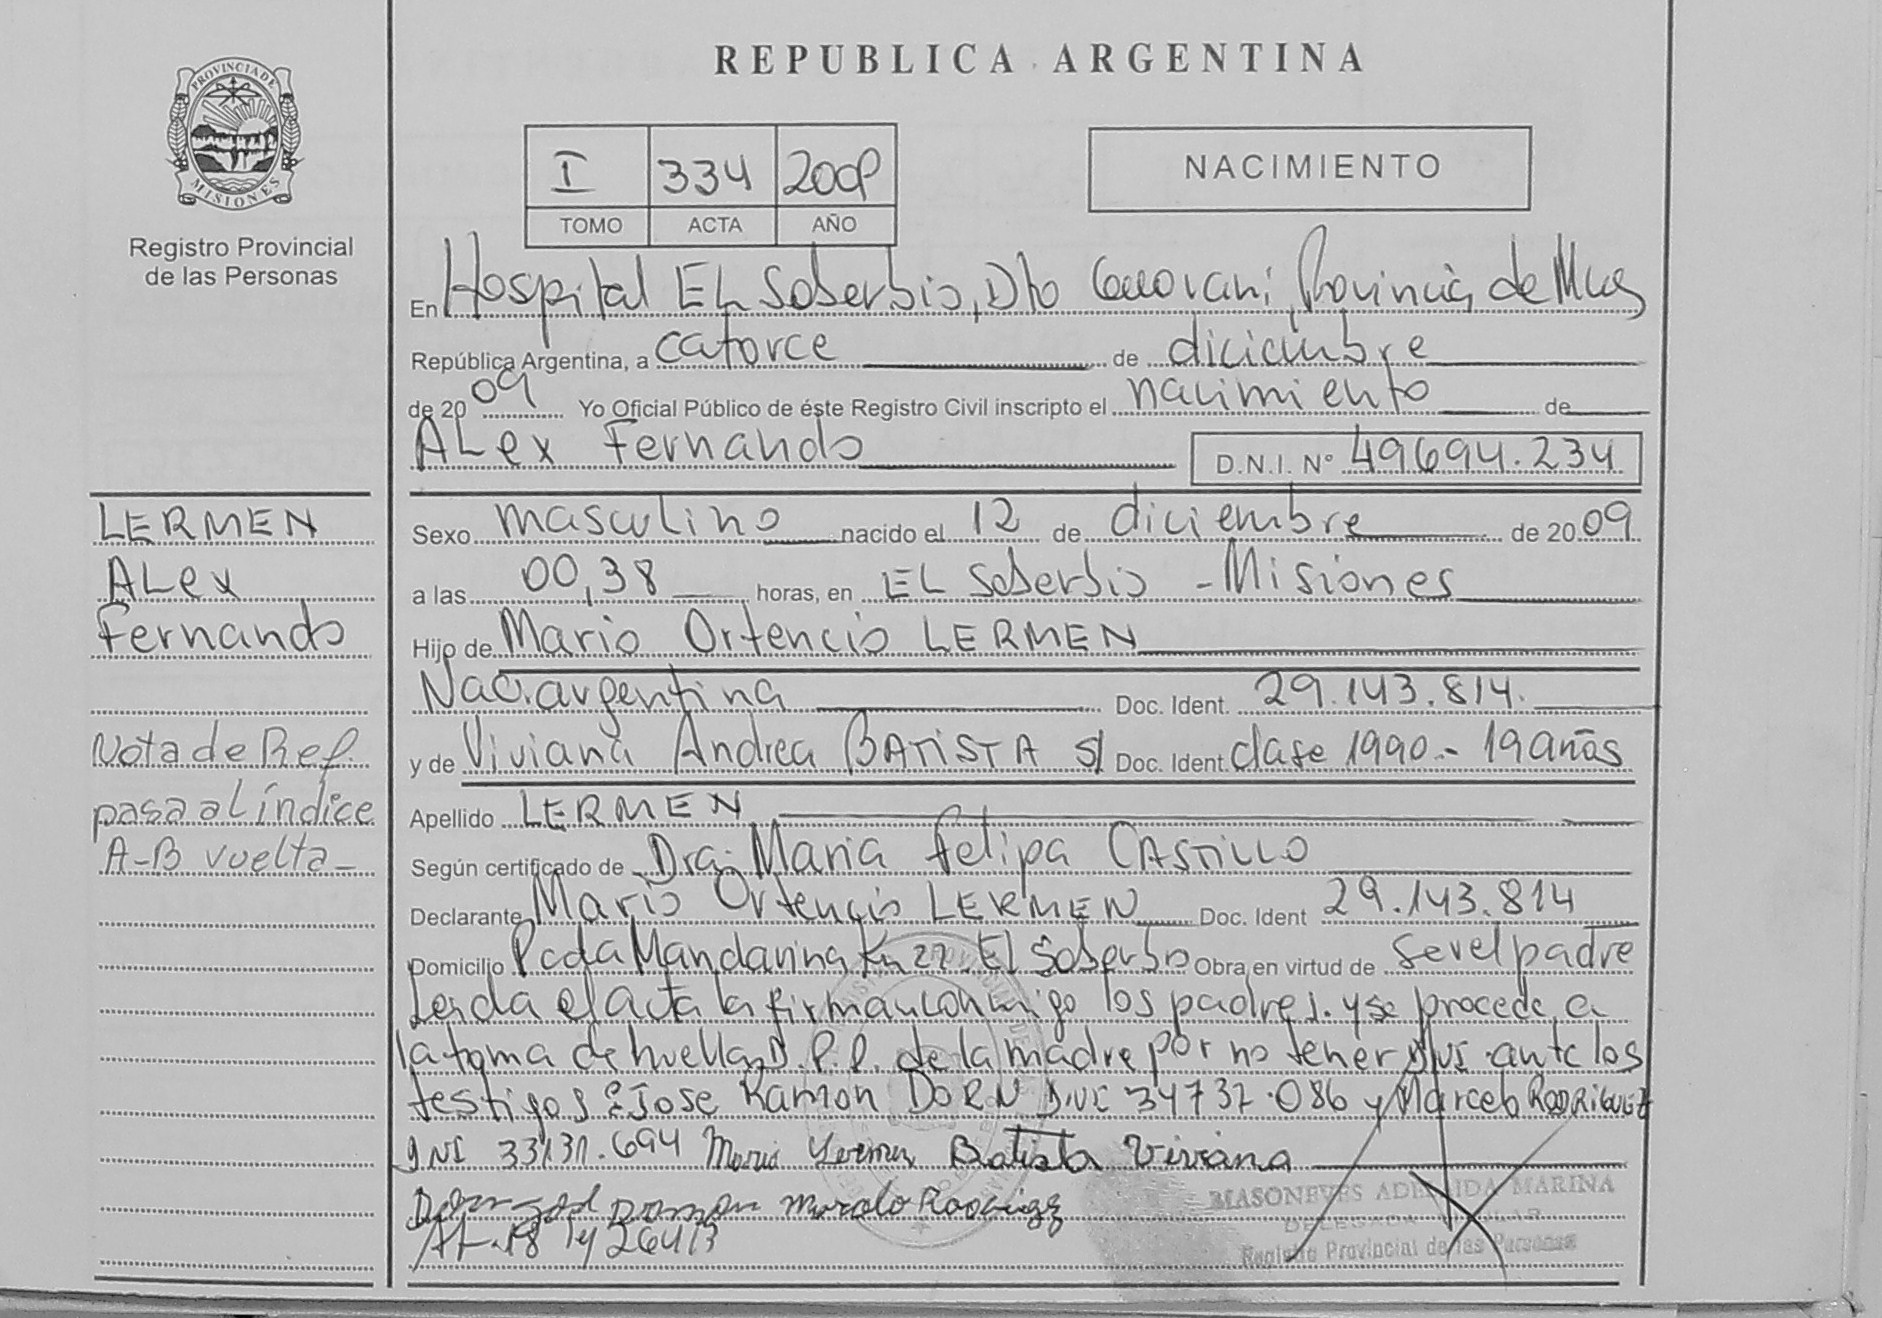 REPUBLICA ARGENTINA
PROVINCIA DE
MISIONES
Registro Provincial
de las Personas
I 334 2009
TOMO ACTA AÑO
NACIMIENTO
En Hospital EL Soberbio, Dto Guarani, Provincia de Mnes
República Argentina, a catorce de diciembre
de 2009 Yo Oficial Público de éste Registro Civil inscripto el nacimiento de
ALex Fernando D.N.I. Nº 49694.234
LERMEN
ALex
Fernando
Sexo masculino nacido el 12 de diciembre de 2009
a las 00,38 horas, en EL Soberbio - Misiones
Hijo de Mario Ortencio LERMEN
Nac. argentina Doc. Ident. 29.143.814.
y de Viviana Andrea BATISTA s/ Doc. Ident clase 1990.- 19 años
Nota de Ref.
pasa al índice
A-B vuelta-
Apellido LERMEN
Según certificado de Dra: Maria Felipa CASTILLO
Declarante Mario Ortencio LERMEN Doc. Ident 29.143.814
Domicilio Pcda Mandarina Km 27. El Soberbio Obra en virtud de ser el padre
Leida el acta la firman conmigo los padres. y se procede a
la toma de huellas D.P.D. de la madre por no tener DNI ante los
testigos: Jose Ramon DORN DNI 34737.086 y Marcelo RODRIGUEZ
DNI 33 .694 Mario Lermen Batista Viviana
Ramon Marcelo Rodriguez
MASONEVES ADELAIDA MARINA
DELEGADA TITULAR
Registro Provincial de las Personas
Ley 26413